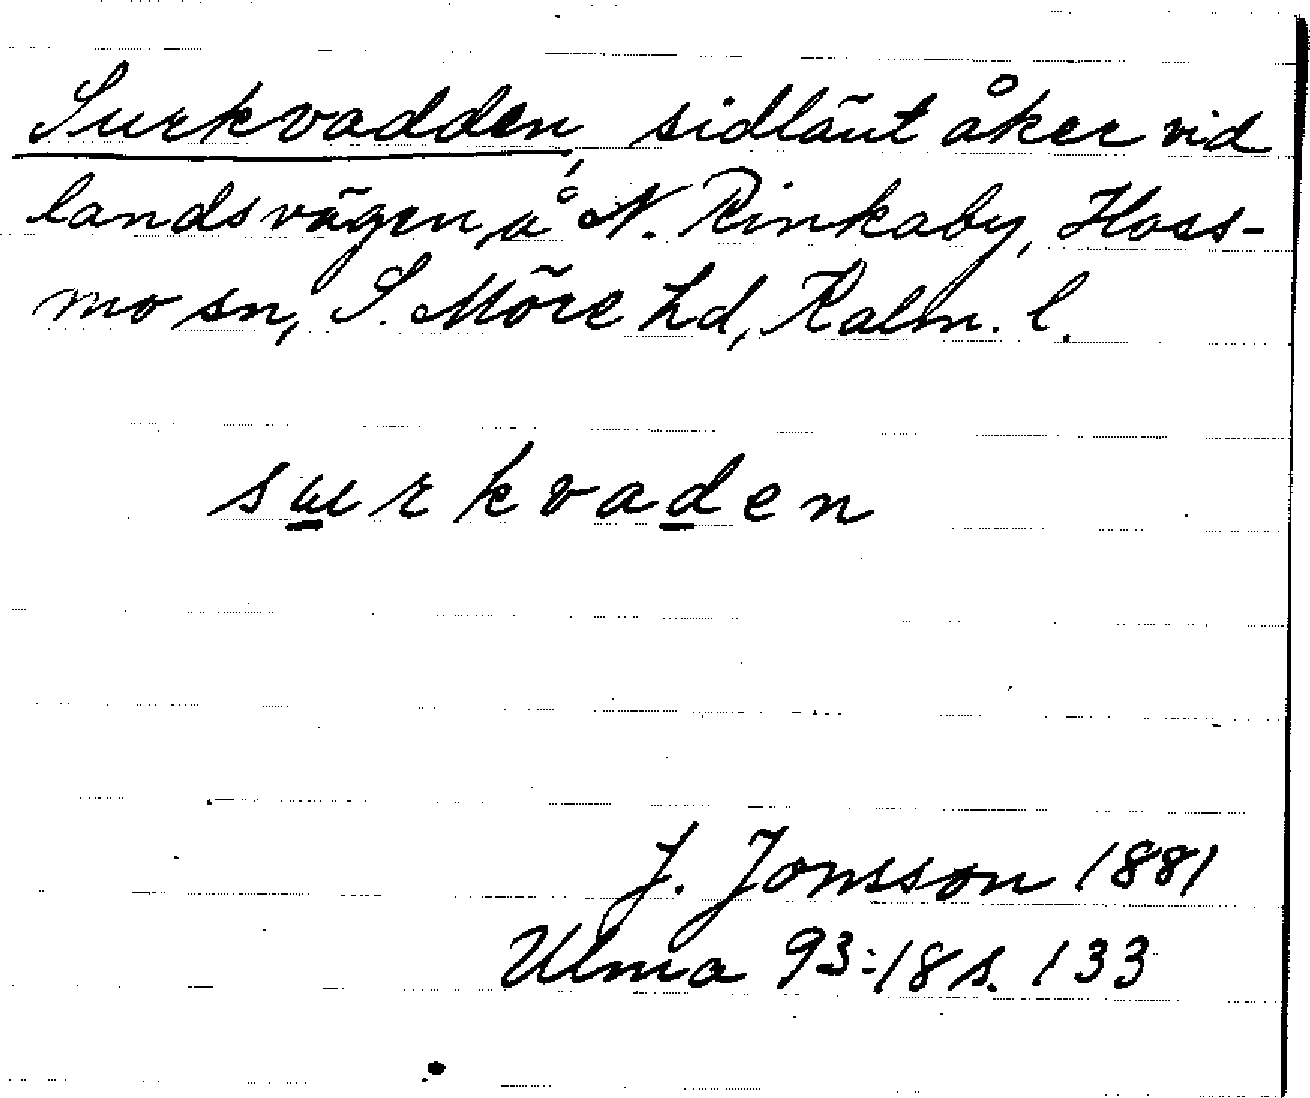 Surkvadden, sidlänt åker vid
landsvägen å N. Rinkaby, Hoss-
mo sn, S. Möre hd, Kalm. l.
surkvaden
J. Jonsson 1881
Ulma 93:18 s. 133